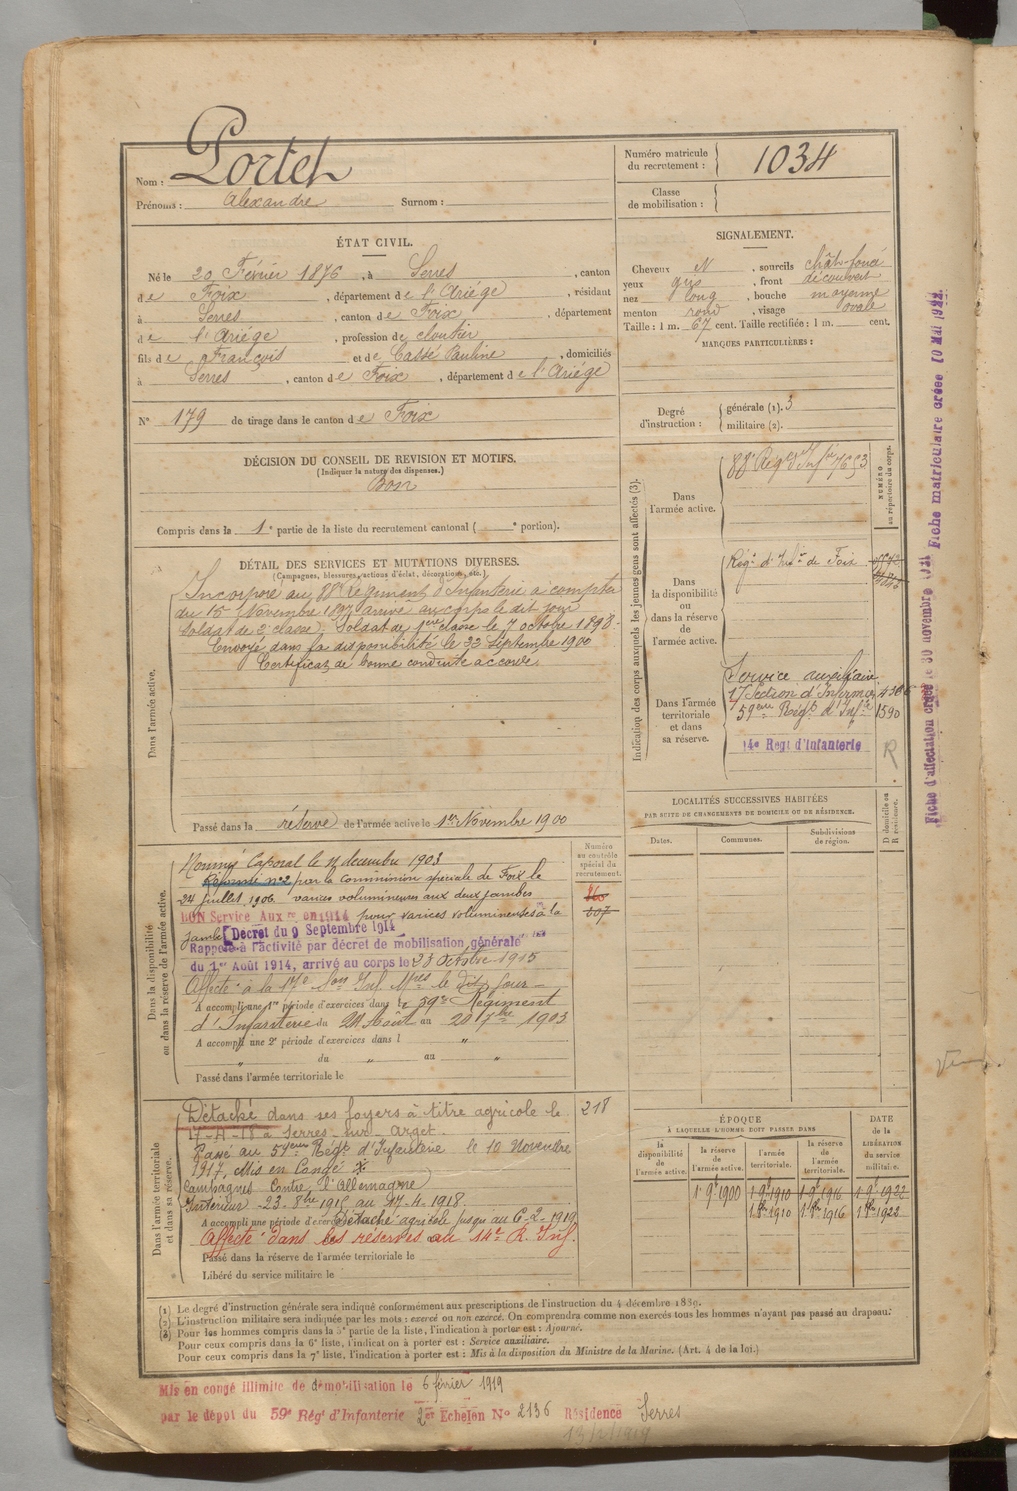 Nom : Portet
Prénoms : Alexandre Surnom :
Numéro matricule du recrutement : 1034
Classe de mobilisation :
ÉTAT CIVIL.
Né le 20 Février 1876, à Serres, canton
de Foix, département de l'Ariége, résidant
à Serres, canton de Foix, département
de l'Ariége, profession de cloutier
fils de François et de Cassé Pauline, domiciliés
à Serres, canton de Foix, département de l'Ariége
N° 179 de tirage dans le canton de Foix
SIGNALEMENT.
Cheveux N, sourcils chât-foncé
yeux gris, front découvert
nez long, bouche moyenne
menton rond, visage ovale
Taille : 1 m. 67 cent. Taille rectifiée : 1 m. cent.
MARQUES PARTICULIÈRES :
Degré d'instruction : générale (1). 3
militaire (2).
DÉCISION DU CONSEIL DE REVISION ET MOTIFS.
(Indiquer la nature des dispenses.)
Bon
Compris dans la 1e partie de la liste du recrutement cantonal ( e portion).
DÉTAIL DES SERVICES ET MUTATIONS DIVERSES.
(Campagnes, blessures, actions d'éclat, décorations, etc.)
Dans l'armée active.
Incorporé au 88e Régiment d'Infanterie à compter
du 15 Novembre 1897 arrivé au corps le dit jour
Soldat de 2e classe. Soldat de 1ere classe le 7 octobre 1898.
Envoyé dans la disponibilité le 22 Septembre 1900
Certificat de bonne conduite accordé.
Passé dans la réserve de l'armée active le 1er Novembre 1900
Indication des corps auxquels les jeunes gens sont affectés (3).
NUMÉRO au répertoire du corps.
Dans l'armée active.
88e Régt d'Infie 7653
Dans la disponibilité ou dans la réserve de l'armée active.
Régt d'Infie de Foix
Dans l'armée territoriale et dans sa réserve.
Service auxiliaire
17 Section d'Infirmiers
59ème Régt d'Infie 1590
14e Regt d'Infanterie
R
LOCALITÉS SUCCESSIVES HABITÉES
PAR SUITE DE CHANGEMENTS DE DOMICILE OU DE RÉSIDENCE.
Dates. Communes. Subdivisions de région. D domicile ou R résidence.
Dans la disponibilité ou dans la réserve de l'armée active.
Numéro au contrôle spécial du recrutement.
Nommé Caporal le décembre 1903
Réformé n°2 par la Commission spéciale de Foix le
24 juillet 1906. varices volumineuses aux deux jambes
BON Service Aux re en 1914 pour varices volumineuses à la
jambe Décret du 9 Septembre 1914
Rappelé à l'activité par décret de mobilisation générale
du 1er Août 1914, arrivé au corps le 23 Octobre 1915
Affecté à la 17e Son Inf. Mres le dit jour
A accompli une 1re période d'exercices dans le 59e Régiment
d'Infanterie du 24 Août au 20 7bre 1903
A accompli une 2e période d'exercices dans l "
" du " au "
Passé dans l'armée territoriale le
107
Dans l'armée territoriale et dans sa réserve.
218
Détaché dans ses foyers à titre agricole le
17-4-18 à Serres-sur-Arget.
Passé au 59ème Régt d'Infanterie le 10 Novembre
1917, Mis en Congé
Campagnes Contre l'Allemagne
Intérieur 23-8bre 1915 au 17-4-1918.
A accompli une période d'exercices Détaché agricole jusqu'au 6-2-1919
Affecté dans les réserves au 14e R. Inf.
Passé dans la réserve de l'armée territoriale le
Libéré du service militaire le
ÉPOQUE À LAQUELLE L'HOMME DOIT PASSER DANS
DATE de la LIBÉRATION DU service militaire.
la disponibilité de l'armée active. la réserve de l'armée active. l'armée territoriale. la réserve de l'armée territoriale.
1.9bre 1900 1.9bre 1910 1.9bre 1916 1.9bre 1922
1.8bre 1910 1.8bre 1916 1.8bre 1922
(1) Le degré d'instruction générale sera indiqué conformément aux prescriptions de l'instruction du 4 décembre 1889.
(2) L'instruction militaire sera indiquée par les mots : exercé ou non exercé. On comprendra comme non exercés tous les hommes n'ayant pas passé au drapeau.
(3) Pour les hommes compris dans la 5e partie de la liste, l'indication à porter est : Ajourné.
Pour ceux compris dans la 6e liste, l'indication à porter est : Service auxiliaire.
Pour ceux compris dans la 7e liste, l'indication à porter est : Mis à la disposition du Ministre de la Marine. (Art. 4 de la loi.)
Mis en congé illimité de démobilisation le 6 février 1919
par le dépôt du 59e Régt d'Infanterie 2e Echelon N° 2136 Résidence Serres
13/2/1919
Fiche d'affectation créée le 30 novembre Fiche matriculaire créée 10 MAI 1922.